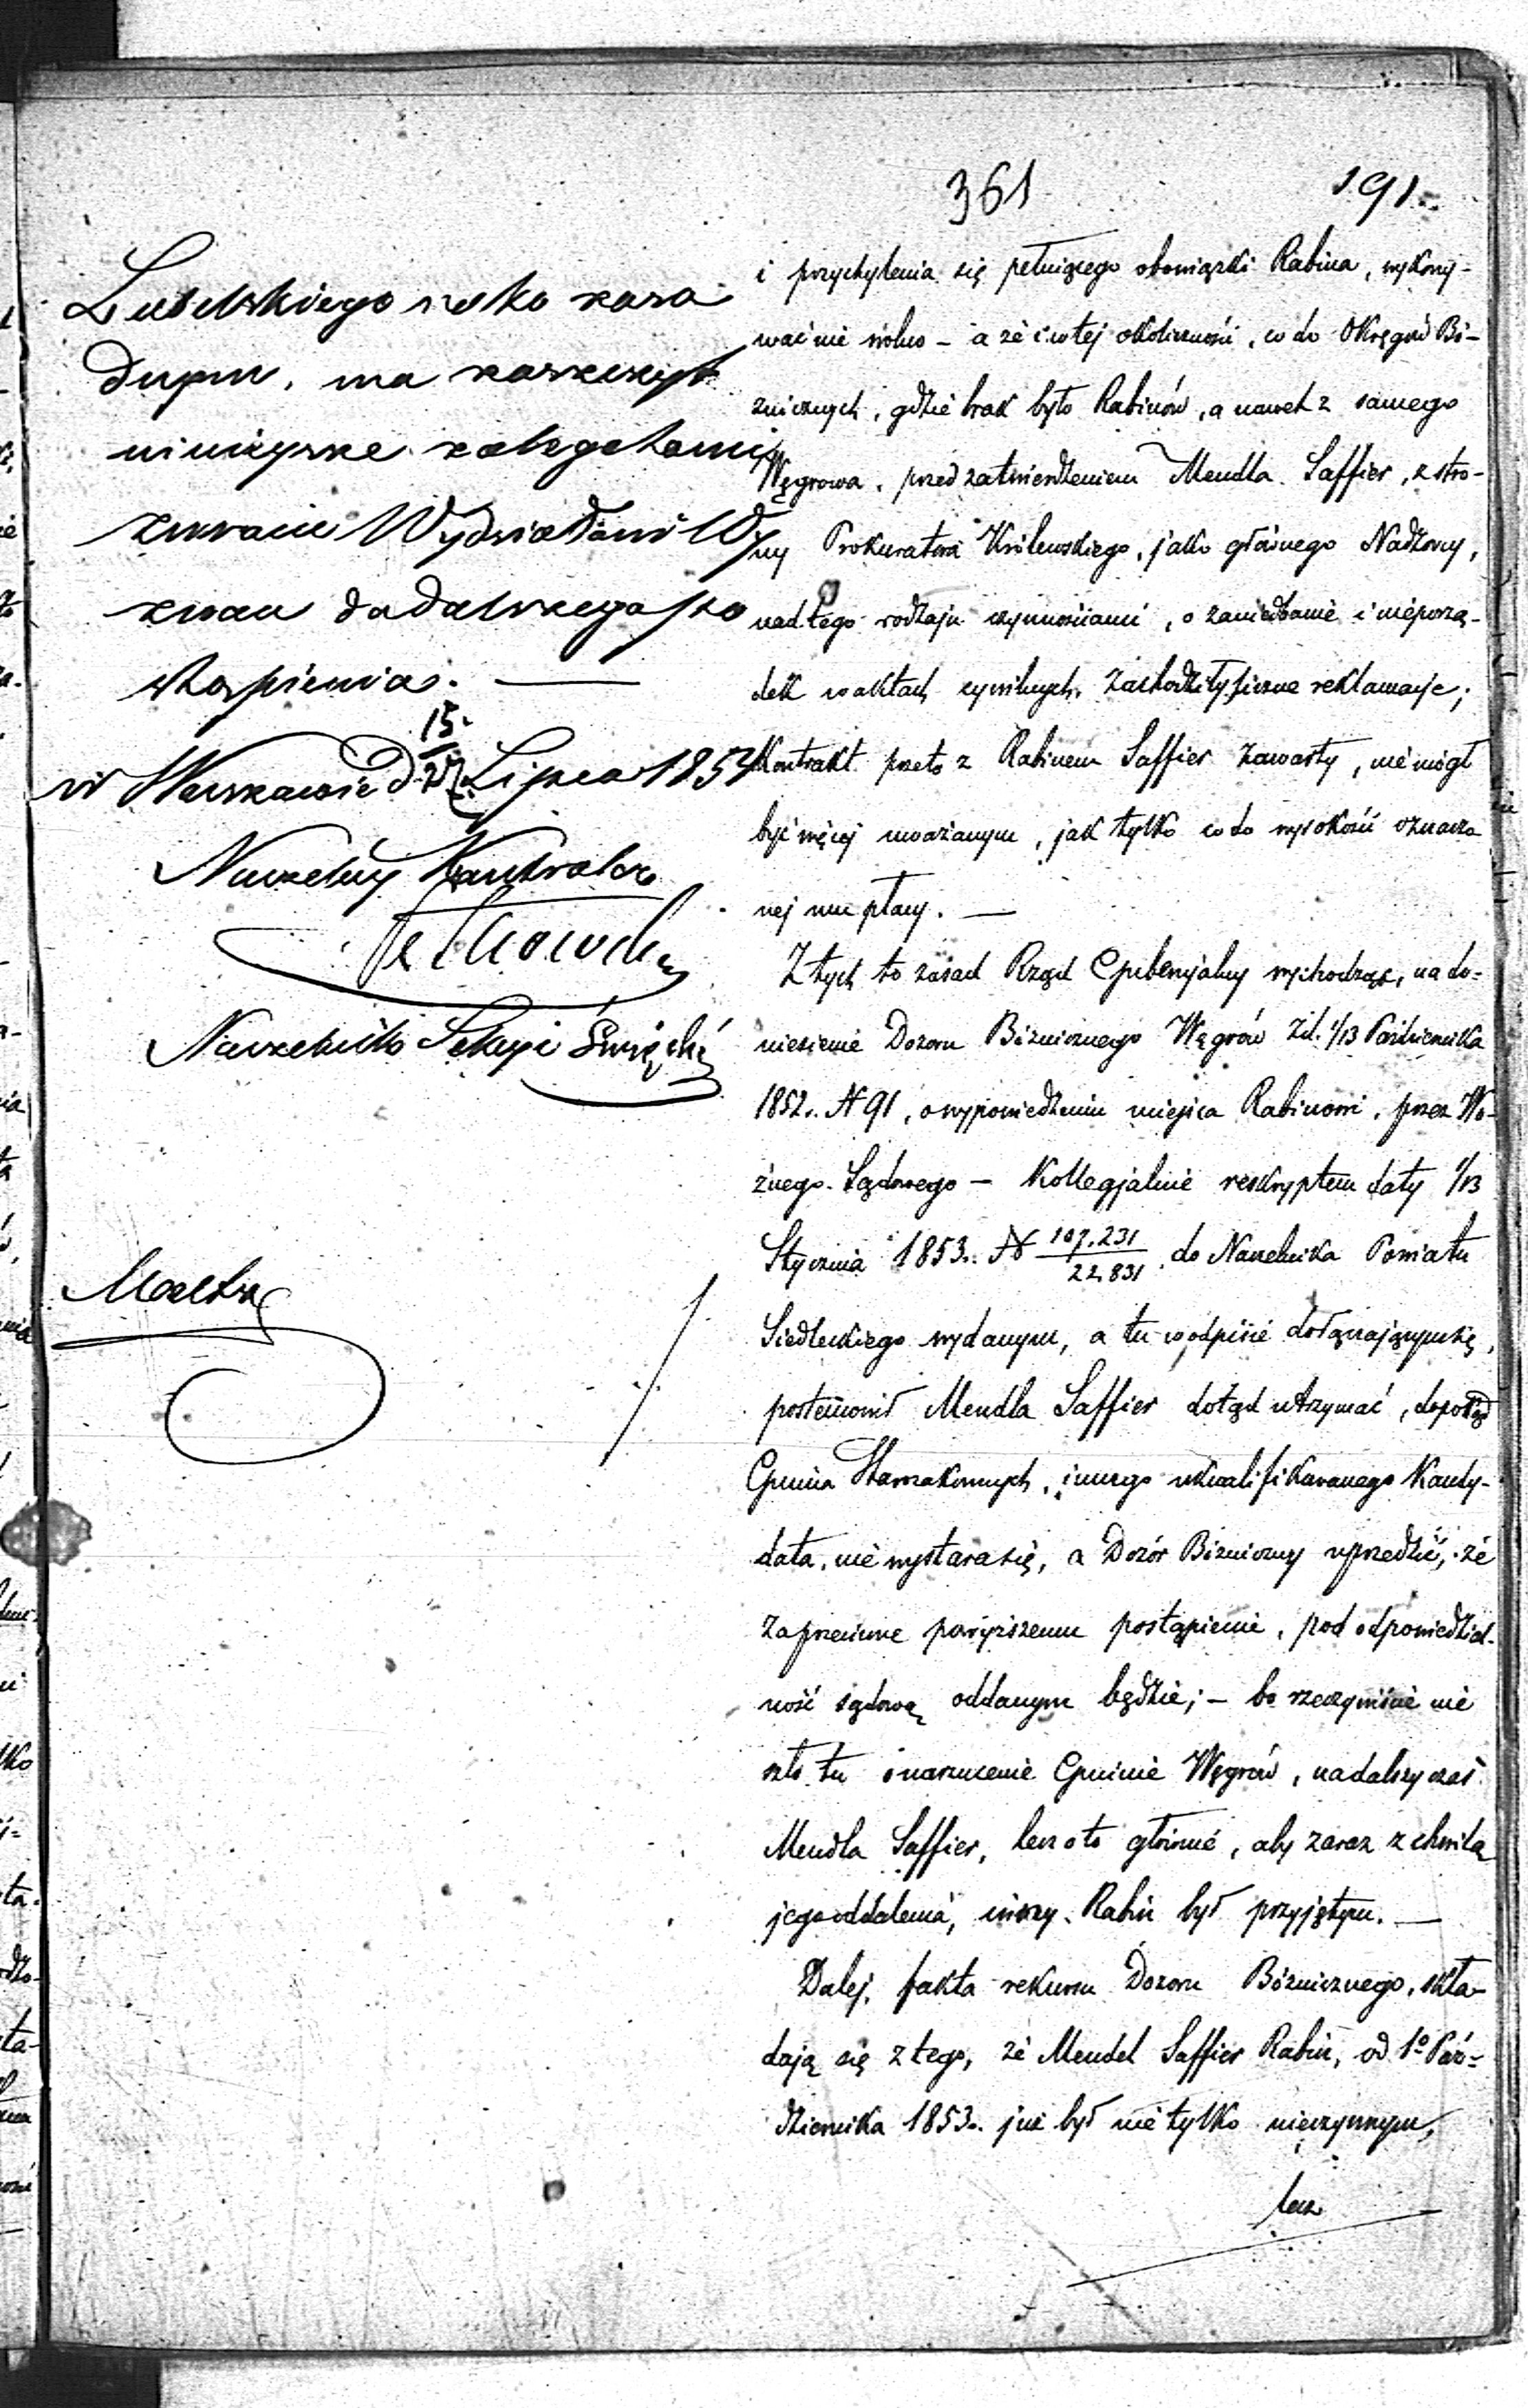 361
191.
Lubelskiego
ma
niniejsze
Wydziałowi Wy
znań do dalszego po
stąpienia. —
w Warszawie d 15/27 Lipca 1854
Naczelny Kontroler
Naczelnik Sekcyi Święcki
i przychylenia się pełniącego obowiązki Rabina, wykony-
wać nie wolno – a że i w tej okoliczności, co do Okręgów Bó-
żniczych, gdzie brak było Rabinów, a nawet z samego
Węgrowa, przed zatwierdzeniem Mendla Saffier, z stro-
ny Prokuratora Królewskiego, jako głównego Nadzorcy,
nad tego rodzaju czynnościami, o zaniedbanie i nieporzą-
dek w aktach cywilnych, zachodziły liczne reklamacje;
Kontrakt przeto z Rabinem Saffier zawarty, nie mógł
być więcej uważanym, jak tylko co do wysokości oznaczo
nej mu płacy. —
Z tych to zasad Rząd Gubernjalny wychodząc, na do-
niesienie Dozoru Bóżnicznego Węgrów z d. 1/13 Października
1852. N 91, o wypowiedzeniu miejsca Rabinowi, przez Wo-
źnego Sądowego – Kollegjalnie reskryptem daty 1/13
Stycznia 1853. N 107.231/22,831 do Naczelnika Powiatu
Siedleckiego wydanym, a tu w odpisie dołączającym się,
postanowił Mendla Saffier dotąd utrzymać, dopokąd
Gmina Starozakonnych, innego ukwalifikowanego Kandy-
data, nie wystara się, a Dozór Bóżniczny uprzedzić, że
za przeciwne powyższemu postąpienie, pod odpowiedzial-
ność sądową oddanym będzie; – bo rzeczywiście nie
szło tu o narzucenie Gminie Węgrów, na dalszy czas
Mendla Saffier, lecz o to głównie, aby zaraz z chwilą
jego oddalenia, inszy Rabin był przyjętym. —
Dalej, fakta rekursu Dozoru Bóżnicznego, skła-
dają się z tego, że Mendel Saffier Rabin, od 1º Paź-
dziernika 1853. już był nie tylko nieczynnym,
lecz